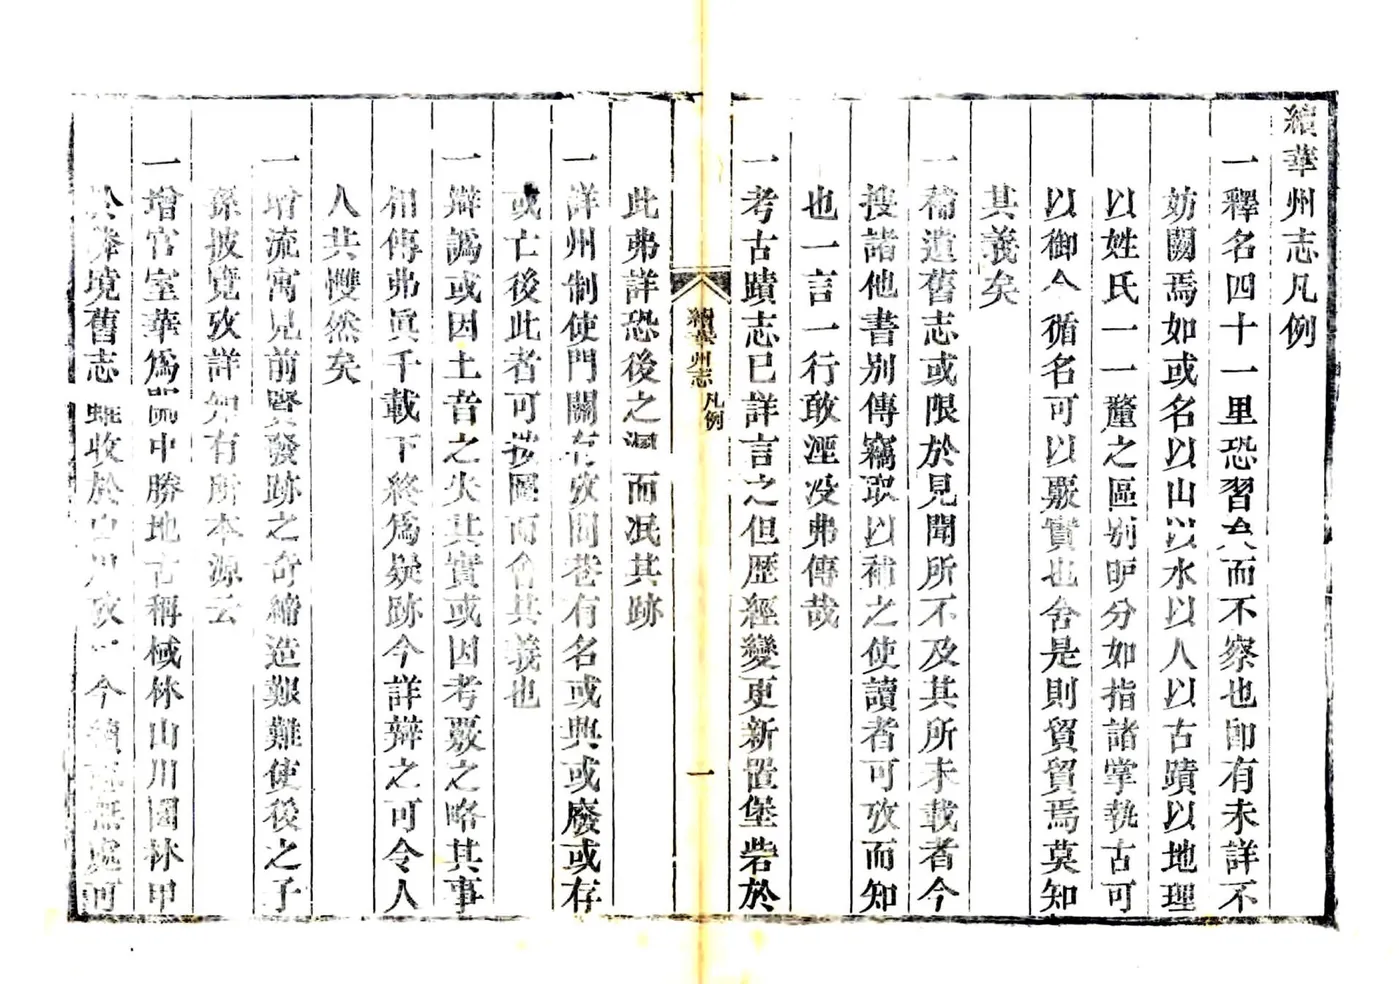 續華州志凡例
一釋名四十一里恐習矣而不察也卽有未詳不
妨闕焉如或名以山以水以人以古蹟以地理
以姓氏一一釐之區别昈分如指諸掌執古可
以御今循名可以覈實也舍是則貿貿焉莫知
其義矣
一補遺舊志或限於見聞所不及其所未載者今
搜諸他書别傳竊取以補之使讀者可攷而知
也一言一行敢湮没弗傳哉
一考古蹟志已詳言之但歷經變更新置堡砦於
續華州志 凡例 一
此弗詳恐後之 而泯其跡
一詳州制使門關有攷閭巷有名或興或廢或存
或亡後此者可按圖而會其義也
一辯譌或因土音之失其實或因考覈之略其事
相傳弗眞千載下終爲疑跡今詳辯之可令人
人共戄然矣
一增流寓見前賢發跡之奇締造艱難使後之子
孫披覽攷詳知有所本源云
一增官室華爲關中勝地古稱棫林山川園林甲
於 境舊志 收於山川攷 今 無處可